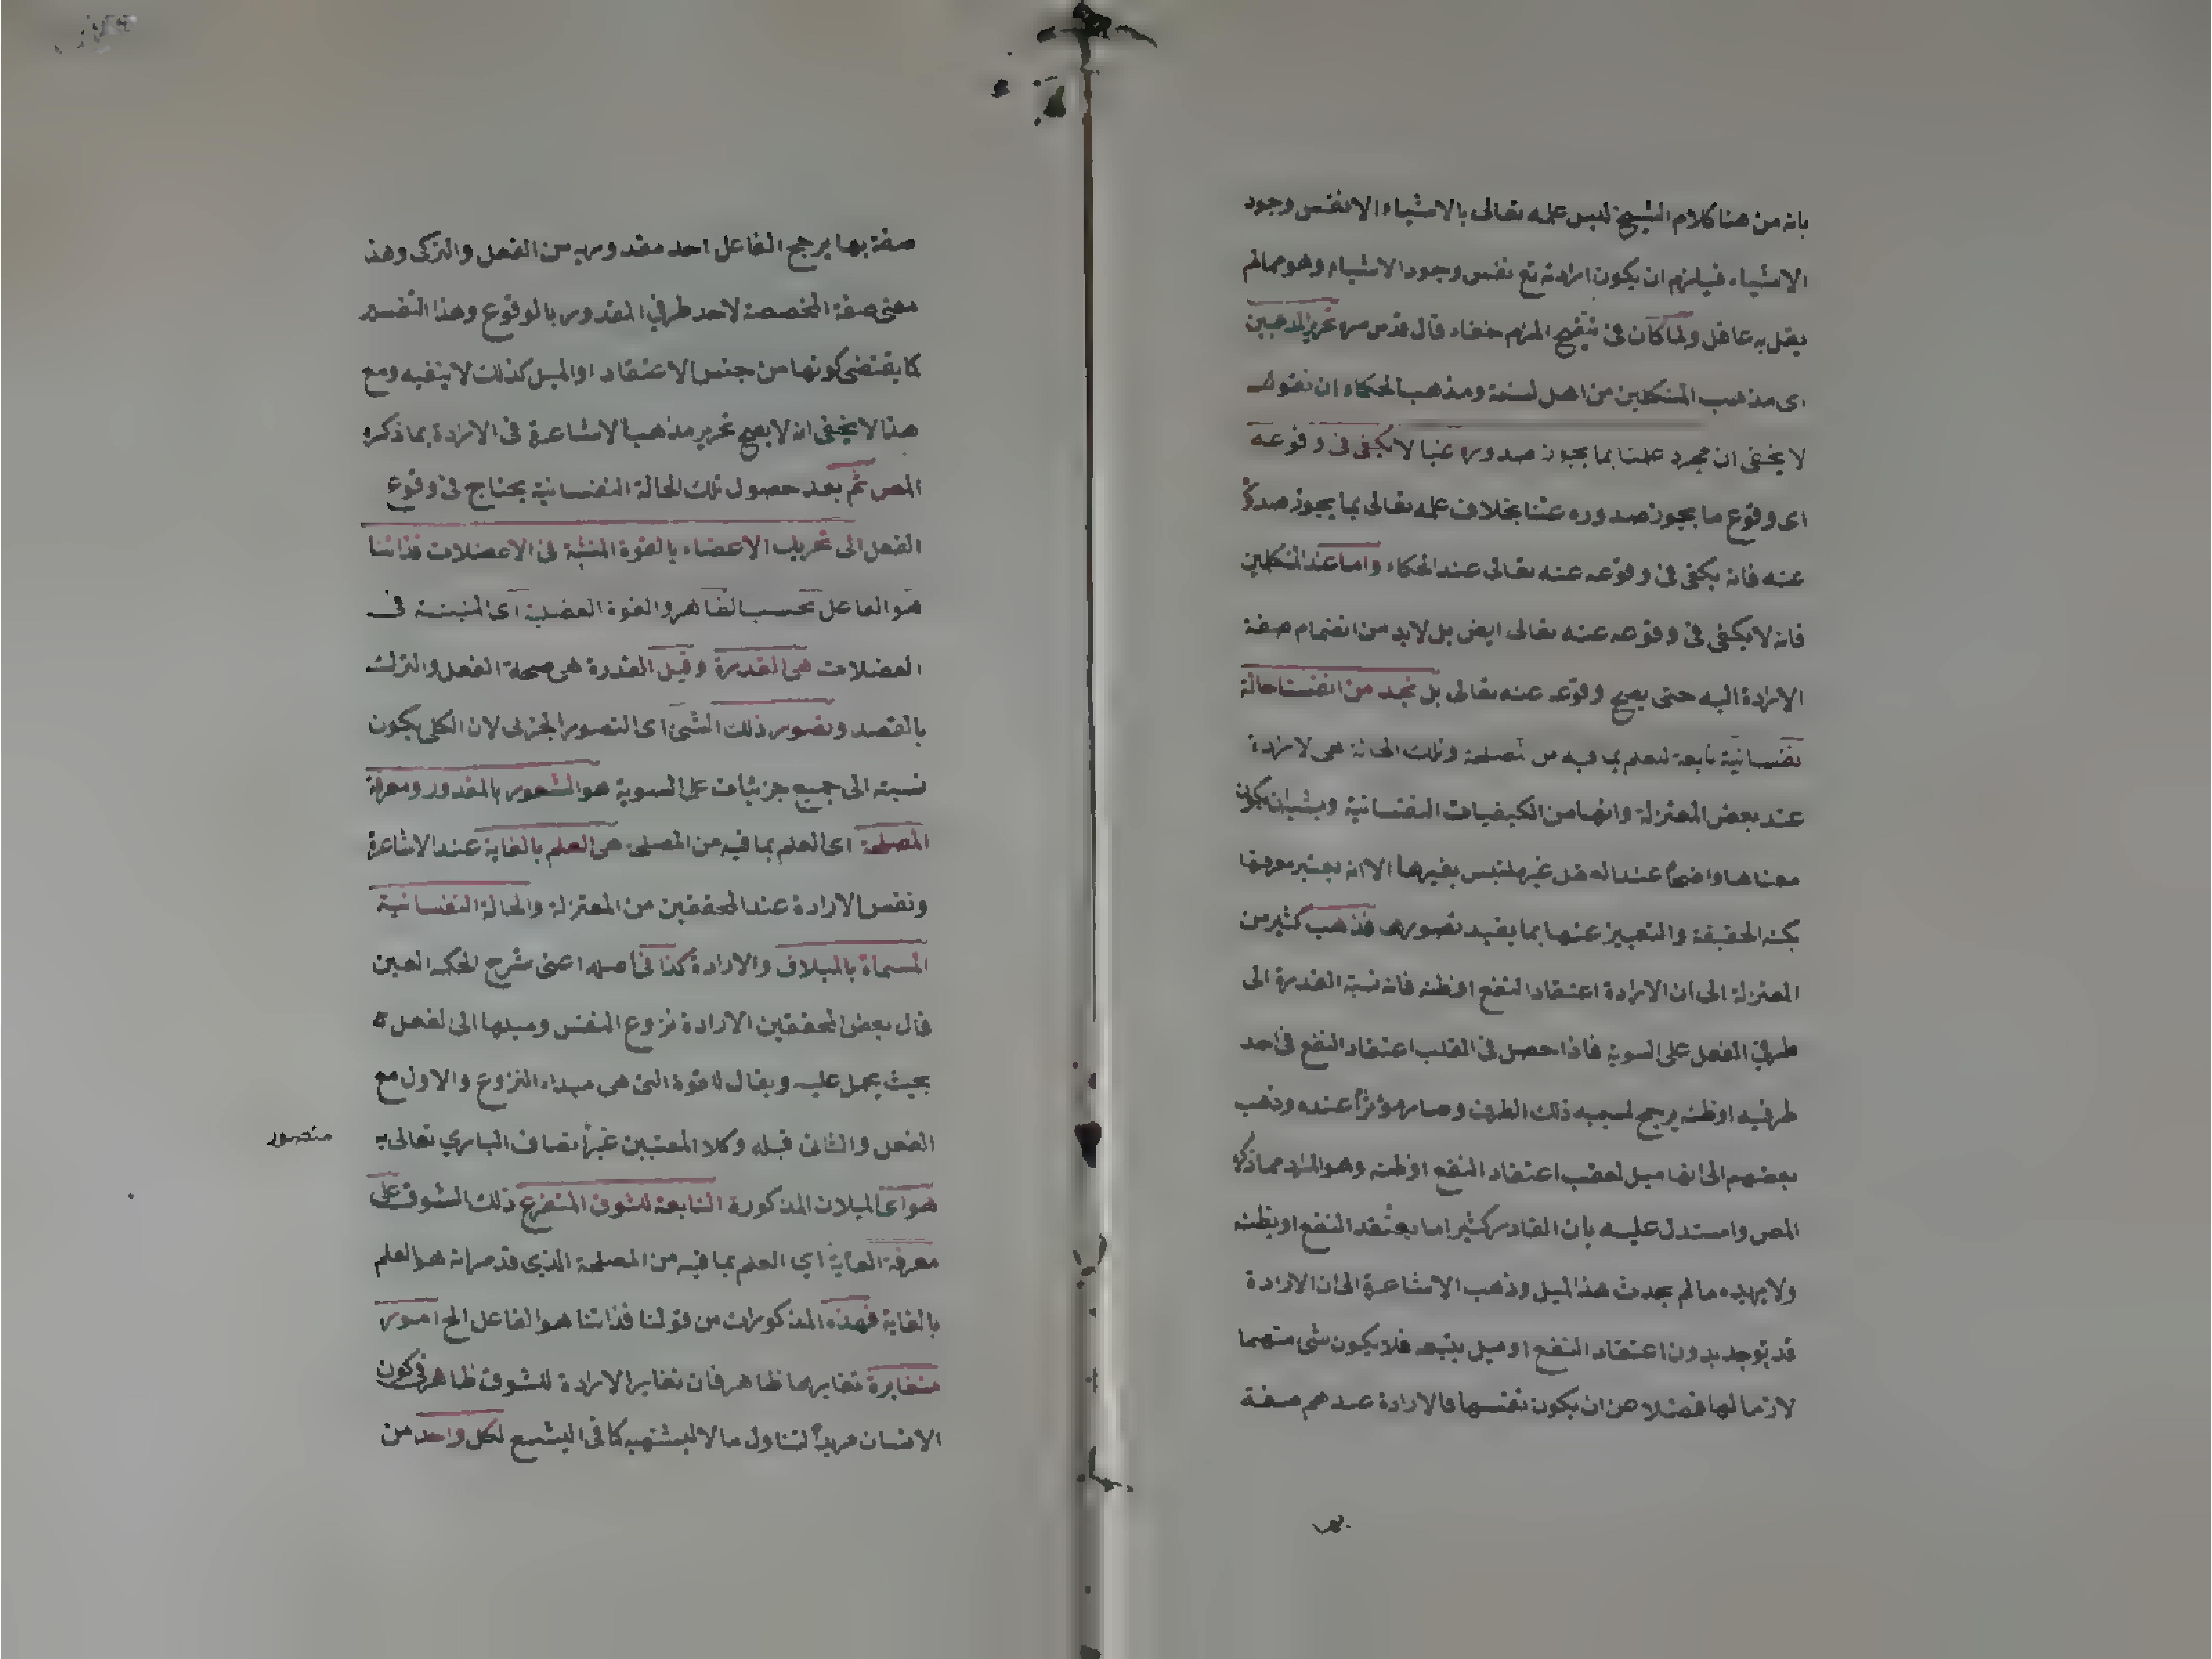 بانه من هنا كلام الشيخ ليس علمه تعالى بالاشياء الا نفس وجود
الاشياء فيلزم ان يكون ارادته تع نفس وجود الاشياء وهو مما لم
يقل به عاقل ولما كان فى تنقيح المرام خفاء قال قدس سره تحرير المذهبين
اى مذهب المتكلمين من اهل السنة ومذهب الحكماء ان نقول
لا يخفى ان مجرد علمنا بما يجوز صدوره عنا لا يكفى فى وقوعه
اى وقوع ما يجوز صدوره عنا بخلاف علمه تعالى بما يجوز صدوره
عنه فانه يكفى فى وقوعه عنه تعالى عند الحكماء واما عند المتكلمين
فانه لا يكفى فى وقوعه عنه تعالى ايض بل لابد من انضمام صفة
الارادة اليه حتى يصح وقوعه عنه تعالى بل نجد من انفسنا حالة
نفسانية تابعة للعلم بما فيه من المصلحة وتلك الحالة هى الارادة
عند بعض المعتزلة وانها من الكيفيات النفسانية ويشبه ان يكون
معناها واضحا عند العقل غير ملتبس بغيرها الا انه يعسر معرفتها
بكنه الحقيقة والتعبير عنها بما يفيد تصورها فذهب كثير من
المعتزلة الى ان الارادة اعتقاد النفع او ظنه فان نسبة القدرة الى
طرفي الفعل على السوية فاذا حصل فى القلب اعتقاد النفع فى احد
طرفيه او ظنه يرجح بسببه ذلك الطرف وصار مؤثرا عنده وذهب
بعضهم الى انها ميل لعقب اعتقاد النفع او ظنه وهو المراد مما ذكره
المص واستدل عليه بان القادر كثيرا ما يعتقد النفع او يظنه
ولا يريده ما لم يحدث هذا الميل وذهب الاشاعرة الى ان الارادة
قد توجد بدون اعتقاد النفع او ميل يتبعه فلا يكون شئ منهما
لازما لها فضلا عن ان يكون نفسها فالارادة عندهم صفة
بها
صفة بها يرجح الفاعل احد مقدوريه من الفعل والترك وهذا
معنى صفة المخصصة لاحد طرفي المقدور بالوقوع وهذا التفسير
كما يقتضى كونها من جنس الاعتقاد او الميل كذلك لا ينفيه ومع
هذا لا يخفى انه لا يصح تحرير مذهب الاشاعرة فى الارادة بما ذكره
المص ثم بعد حصول تلك الحالة النفسانية يحتاج فى وقوع
الفعل الى تحريك الاعضاء بالقوة المنبثة فى الاعضلات فذاتنا
هو الفاعل بحسب الظاهر والقوة العضلية اى المنبثة فى
العضلات هى القدرة وقيل القدرة هى صحة الفعل والترك
بالقصد وتصور ذلك الشئ اى التصور الجزئى لان الكلى يكون
نسبته الى جميع جزئيات على السوية هو الشعور بالمقدور ومعرفة
المصلحة اى العلم بما فيه من المصلحة هى العلم بالغاية عند الاشاعرة
ونفس الارادة عند المحققين من المعتزلة والحالة النفسانية
المسماة بالميلان والارادة كذا فى اصله اعنى شرح الحكمة العين
قال بعض المحققين الارادة نزوع النفس وميلها الى الفعل
بحيث يحمل عليه ويقال لقوة التى هى مبداء النزوع والاول مع
الفعل والثانى قبله وكلا المعنيين غير اتصاف الباري تعالى به
متصور
هو اى الميلان المذكورة التابعة للشوق المتفرع ذلك الشوق على
معرفة الغاية اي العلم بما فيه من المصلحة الذي قد مر انه هو العلم
بالغاية فهذه المذكورات من قولنا فذاتنا هو الفاعل الخ امور
متغايرة تغايرها ظاهر فان تغاير الارادة للشوق ظاهر فى كون
الانسان مريدا لتناول ما لا يشتهيه كما فى البشع لكل واحد من